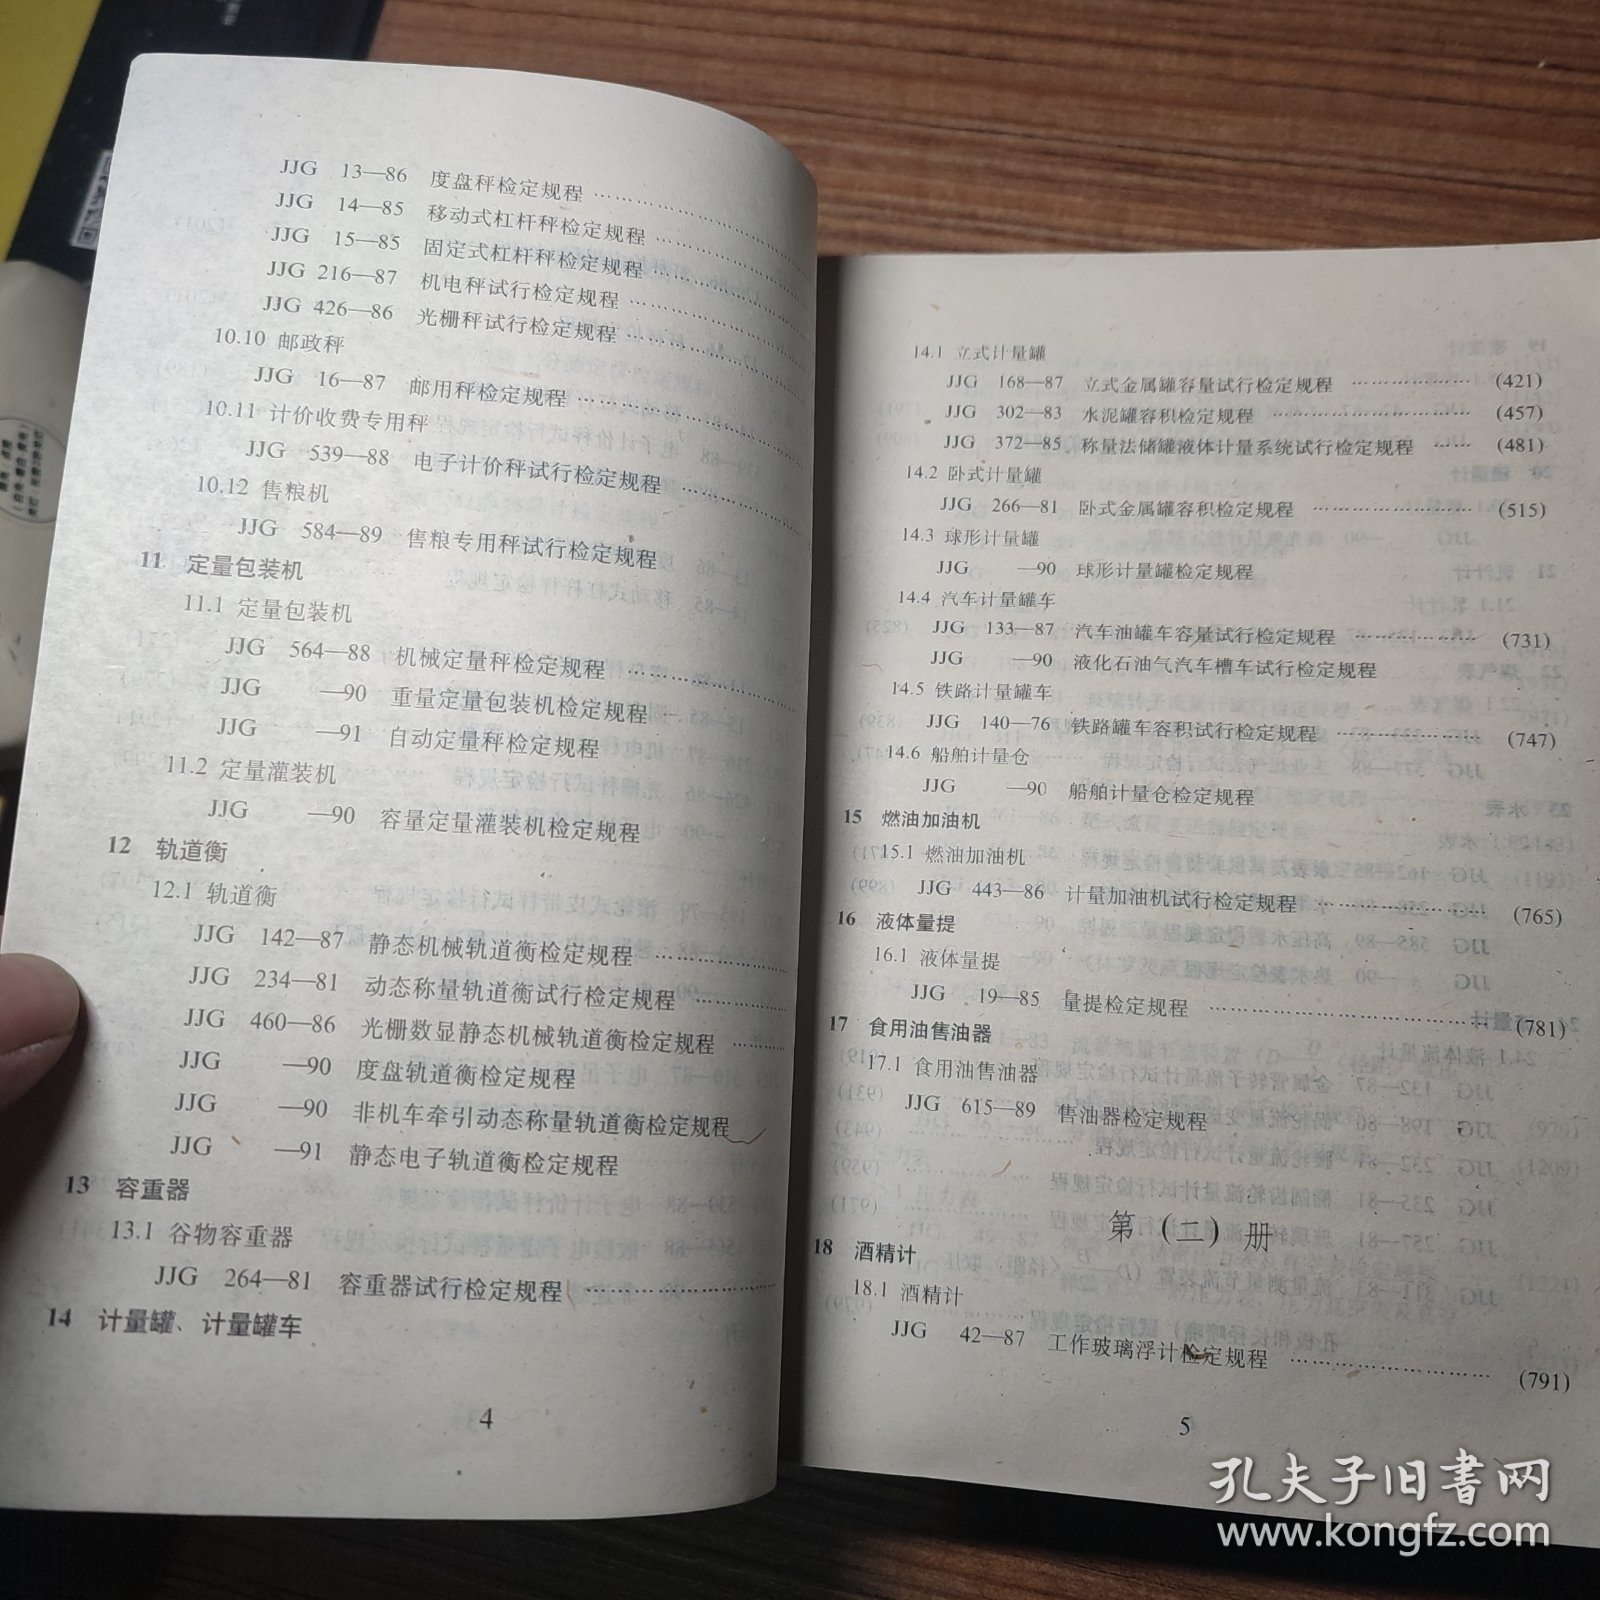 JJG 13—86 度盘秤检定规程
JJG 14—85 移动式杠杆秤检定规程
JJG 15—85 固定式杠杆秤检定规程
JJG 216—87 机电秤试行检定规程
JJG 426—86 光栅秤试行检定规程
10.10 邮政秤
JJG 16—87 邮用秤检定规程
10.11 计价收费专用秤
JJG 539—88 电子计价秤试行检定规程
10.12 售粮机
JJG 584—89 售粮专用秤试行检定规程
11 定量包装机
11.1 定量包装机
JJG 564—88 机械定量秤检定规程
JJG —90 重量定量包装机检定规程
JJG —91 自动定量秤检定规程
11.2 定量灌装机
JJG —90 容量定量灌装机检定规程
12 轨道衡
12.1 轨道衡
JJG 142—87 静态机械轨道衡检定规程
JJG 234—81 动态称量轨道衡试行检定规程
JJG 460—86 光栅数显静态机械轨道衡检定规程
JJG —90 度盘轨道衡检定规程
JJG —90 非机车牵引动态称量轨道衡检定规程
JJG —91 静态电子轨道衡检定规程
13 容重器
13.1 谷物容重器
JJG 264—81 容重器试行检定规程
14 计量罐、计量罐车
4
14.1 立式计量罐
JJG 168—87 立式金属罐容量试行检定规程 (421)
JJG 302—83 水泥罐容积检定规程 (457)
JJG 372—85 称量法储罐液体计量系统试行检定规程 (481)
14.2 卧式计量罐
JJG 266—81 卧式金属罐容积检定规程 (515)
14.3 球形计量罐
JJG —90 球形计量罐检定规程
14.4 汽车计量罐车
JJG 133—87 汽车油罐车容量试行检定规程 (731)
JJG —90 液化石油气汽车槽车试行检定规程
14.5 铁路计量罐车
JJG 140—76 铁路罐车容积试行检定规程 (747)
14.6 船舶计量仓
JJG —90 船舶计量仓检定规程
15 燃油加油机
15.1 燃油加油机
JJG 443—86 计量加油机试行检定规程 (765)
16 液体量提
16.1 液体量提
JJG 19—85 量提检定规程 (781)
17 食用油售油器
17.1 食用油售油器
JJG 615—89 售油器检定规程
第(二)册
18 酒精计
18.1 酒精计
JJG 42—87 工作玻璃浮计检定规程 (791)
5
孔夫子旧书网
www.kongfz.com